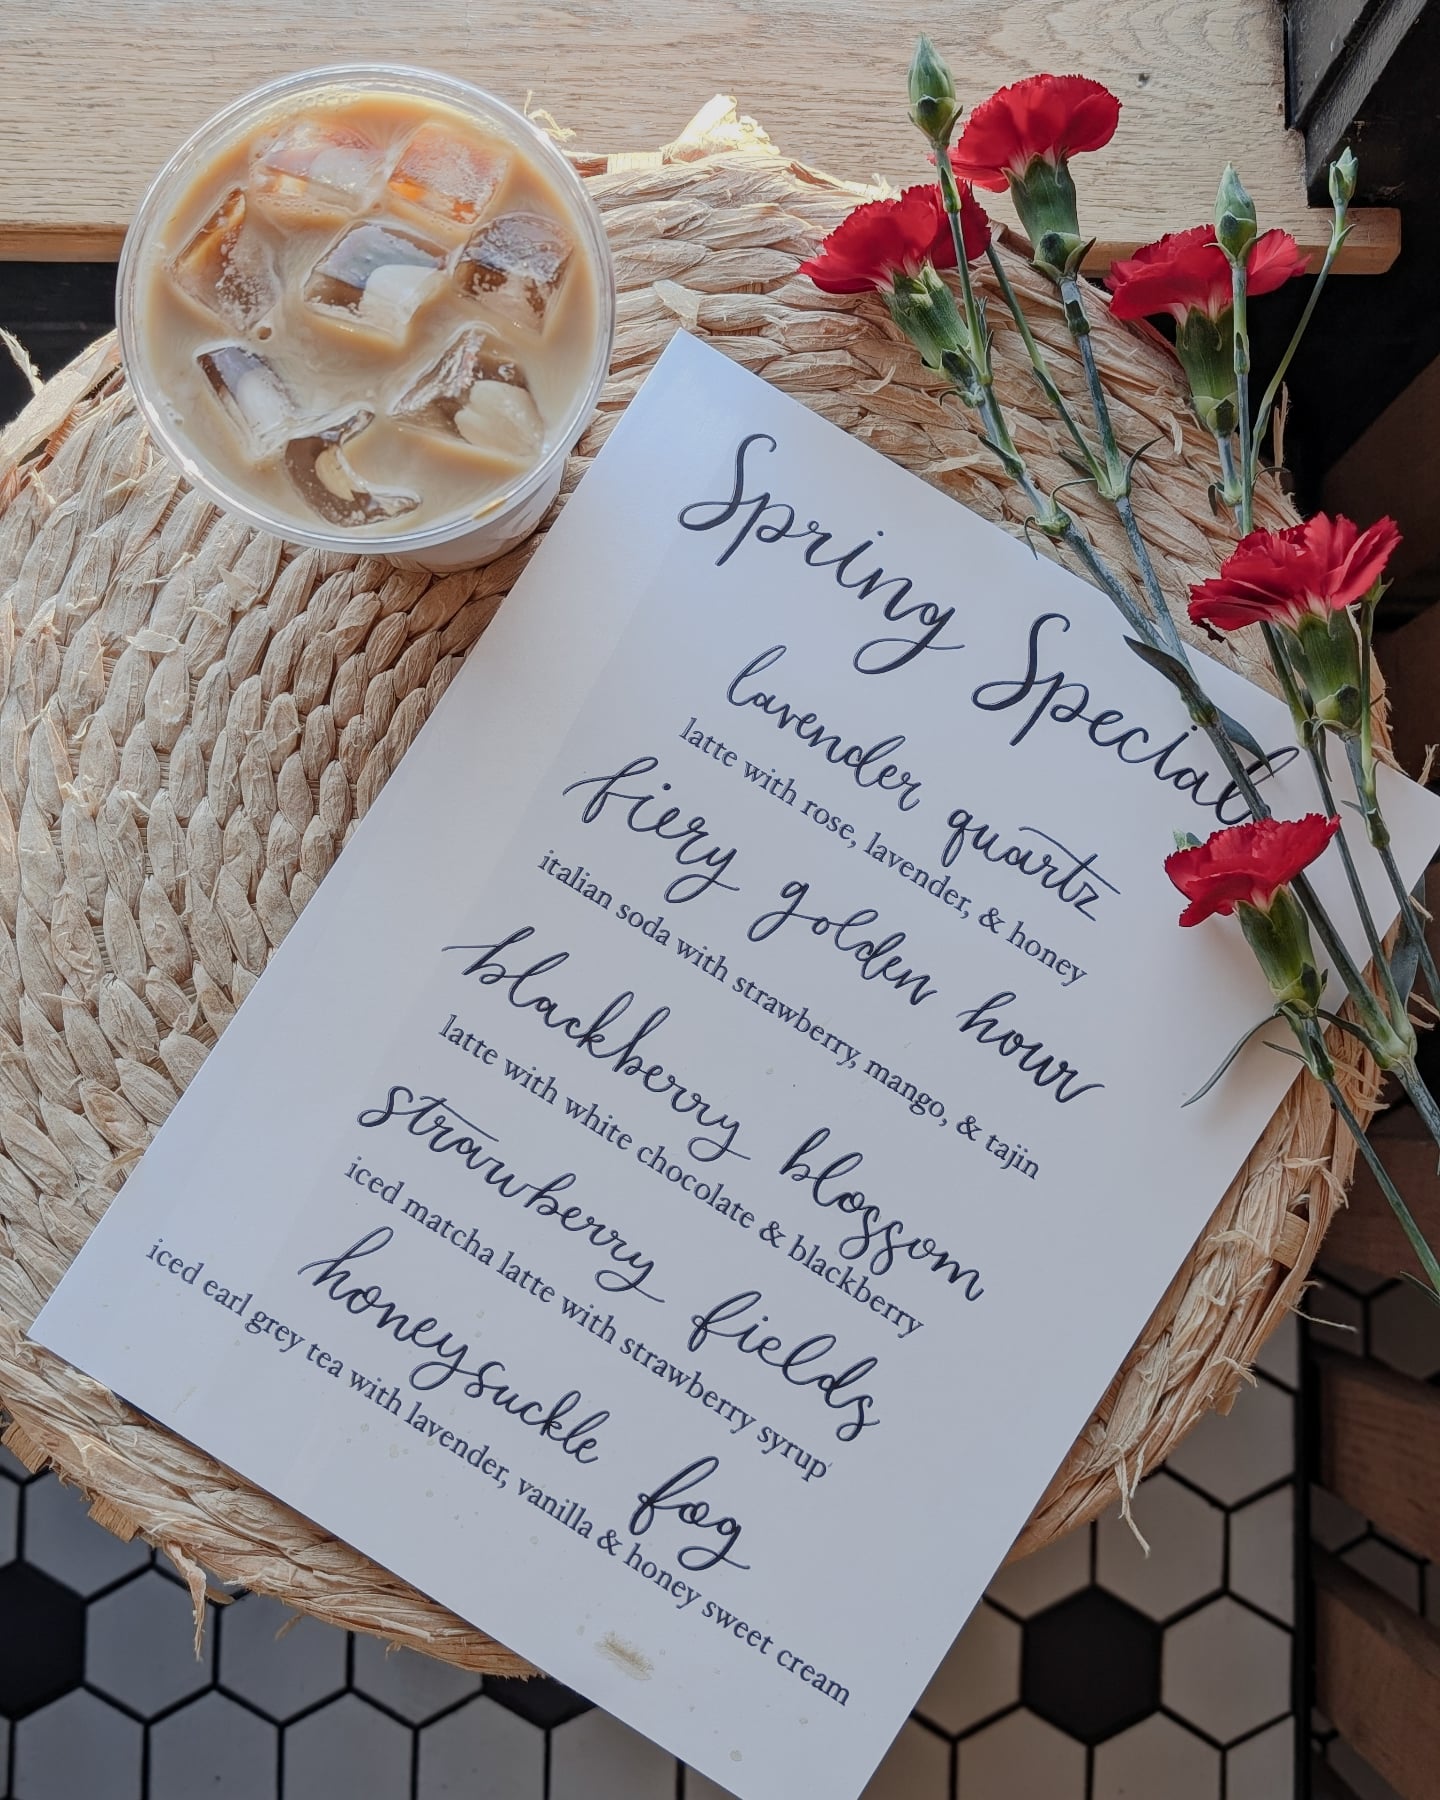 Spring Special
lavender quartz
latte with rose, lavender, & honey
fiery golden hour
italian soda with strawberry, mango, & tajin
blackberry blossom
latte with white chocolate & blackberry
strawberry fields
iced matcha latte with strawberry syrup
honeysuckle fog
iced earl grey tea with lavender, vanilla & honey sweet cream